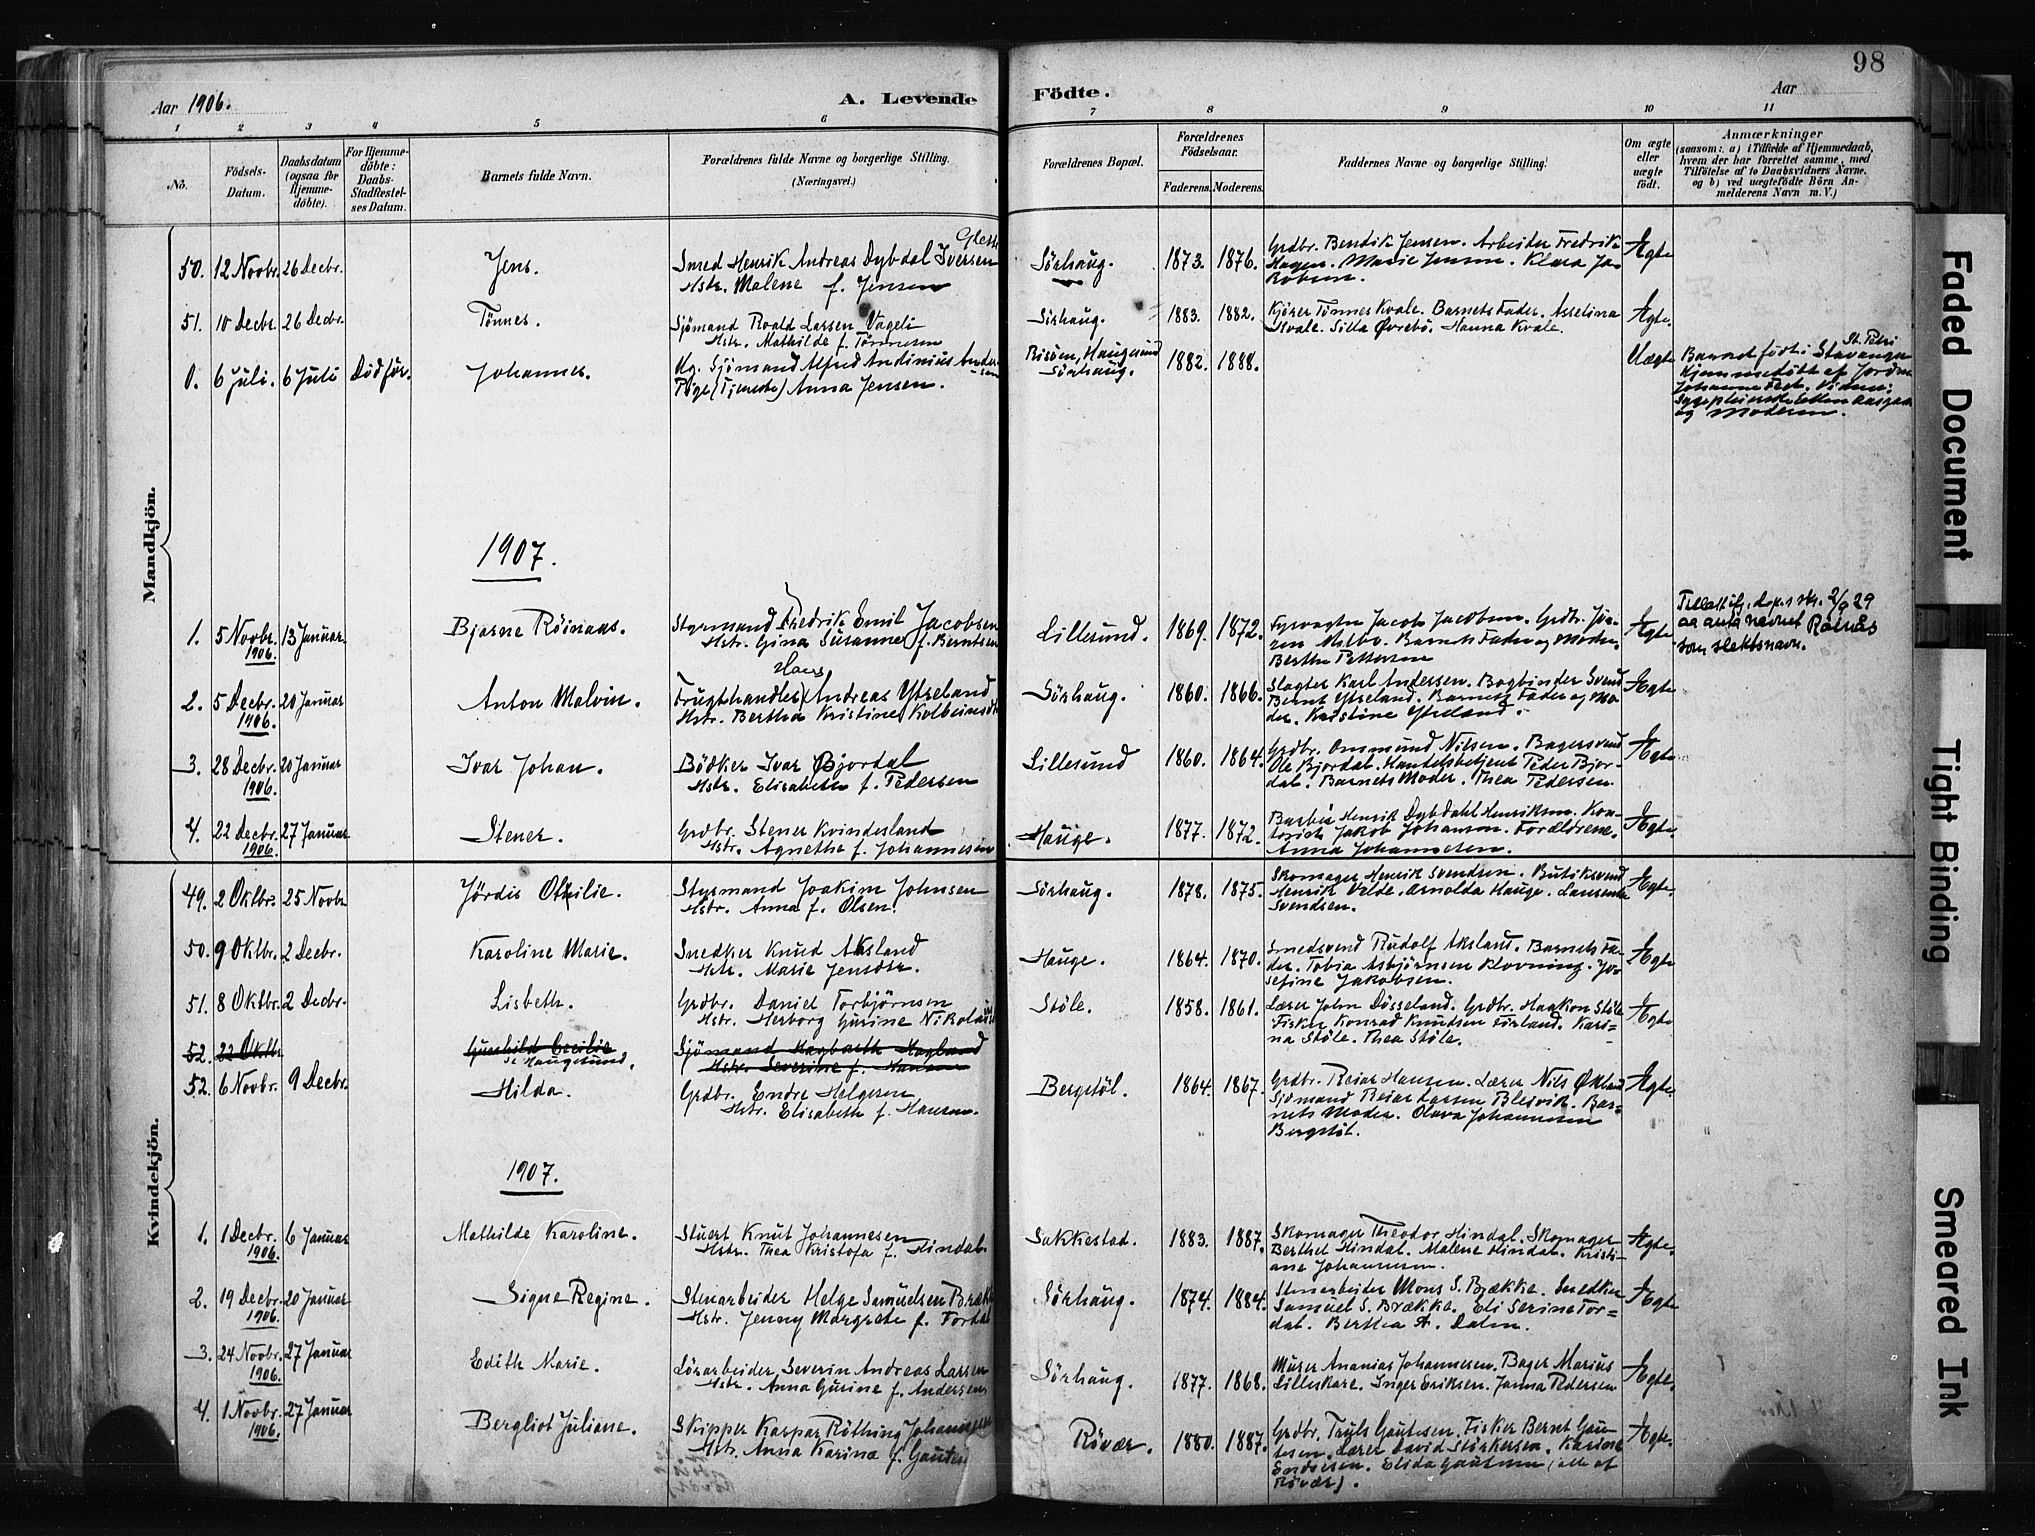 98
Aar 1906.
A. Levende
Födte.
Aar
1 2 3 4 5 6 7 8 9 10 11
No.
Födsels-
Datum.
Daabsdatum
(ogsaa for
Hjemme-
döbte).
For Hjemme-
döbte:
Daabs-
Stadfæstel-
ses Datum.
Barnets fulde Navn.
Forældrenes fulde Navne og borgerlige Stilling.
(Næringsvei.)
Forældrenes Bopæl.
Forældrenes
Födselsaar.
Faderens. Moderens.
Faddernes Navne og borgerlige Stilling.
Om ægte
eller
uægte
födt.
Anmærkninger
(saasom: a) i Tilfælde af Hjemmedaab,
hvem der har forrettet samme, med
Tilföielse af to Daabsvidners Navne,
og b) ved uægtefödte Börn An-
melderens Navn m.V.)
Mandkjön.
50. 12 Novbr. 26 Decbr. Jens. Smed Henrik Andreas Dybdal Iversen
Hstr. Malene f. Jensen
Sörhaug. 1873. 1876. Grdbr. Bendik Jensen. Arbeider Fredrik
Hagen. Marie Jensen. Klara Ja-
kobsen. Ægte
51. 10 Decbr. 26 Decbr. Tönnes. Sjömand Roald Larsen Vageli
Hstr. Mathilde f. Tönnesen
Sörhaug. 1883. 1882. Kjörer Tönnes Kvale. Barnets Fader. Asselina
Kvale. Silla Øvrebö. Hanna Kvale. Ægte.
0. 6 Juli. 6 Juli Död för. Johannes. Ug. Sjömand Alfred Andinius Ander-
sen
Pige (Tjeneste) Anna Jensen.
Risöen, Haugesund
Sörhaug. 1882. 1888. Uægte
St. Petri
Barnet födt i Stavanger
Hjemmedöbt af Jordm.
og Moderen.
1907.
1. 5 Novbr. 1906. 13 Januar. Bjarne Röinaas. Styrmand Fredrik Emil Jacobsen
Hstr. Gina Susanne f. Berntsen
Lillesund. 1869. 1872. Fyrvogter Jacob Jacobsen. Grdbr. Jör-
Barnets Fader og Moder.
Berthe Pettersen Ægte
2/9 29
navnet Röinås
som slektsnavn.
Hans
2. 5 Decbr. 1906. 20 Januar Anton Malvin. Frugthandler Andreas Ytreland
Hstr. Bertha Kristine Kolbeinsdtr.
Sörhaug. 1860. 1866. Slagter Karl Andersen. Bogbinder Svend
Bernt Ytreland. Barnets Fader og Mo-
der. Kristine Ytreland. Ægte
3. 28 Decbr. 1906. 20 Januar Ivar Johan. Bödker Ivar Bjordal
Hstr. Elisabeth f. Pedersen
Lillesund 1860. 1864. Grdbr. Ommund Nilsen. Bagersvend
Ole Bjordal. Handelsbetjent Peder Bjor-
dal. Barnets Moder. Thea Pedersen. Ægte
4. 22 Decbr. 1906. 27 Januar Stener. Grdbr. Stener Kvindesland
Hstr. Agnethe f. Johannesen
Hauge. 1877. 1872. Barber Henrik Dybdahl Henriksen. Kon-
torist Jakob Johansen. Forældrene.
Anna Johannesen. Ægte.
Kvindekjön.
49. 2 Oktbr. 25 Novbr. Jördis Otilie. Styrmand Joakim Johnsen
Hstr. Anna f. Olsen.
Sörhaug. 1878. 1875. Skomager Henrik Svendsen. Butiksvend
Henrik Velde. Arnolda Hauge. Laurense
Svendsen. Ægte.
50. 9 Oktbr. 2 Decbr. Karoline Marie. Snedker Knud Aksland
Hstr. Marie Jensdtr.
Hauge. 1864. 1870. Smedsvend Rudolf Aksland. Barnets Fa-
der. Tobia Asbjörnsen Klovning. Jo-
sefine Jakobsen. Ægte
51. 8 Oktbr. 2 Decbr. Lisbeth. Grdbr. Daniel Torbjörnsen
Hstr. Herborg Gurine Nikolai
Stöle. 1858. 1861. Lærer John Dösseland. Grdbr. Haakon Stöle
Fisker Konrad Knudsen Förland. Kari-
na Stöle. Thea Stöle. Ægte
52. 22 Oktbr. Gunhild Cecilie Sjömand Hagbarth Hagland
i Haugesund. Hstr. Severine f. Hansen
52. 6 Novbr. 9 Decbr. Hilda. Grdbr. Endre Helgesen
Hstr. Elisabeth f. Hansen.
Bergstöl. 1864. 1867. Grdbr. Reiar Hansen. Lærer Nils Økland
Sjömand Reiar Larsen Bleivik. Bar-
nets Moder. Olava Johannesen
Bergstöl. Ægte.
1907.
1. 1 Decbr. 1906. 6 Januar Mathilde Karoline. Stuert Knut Johannesen
Hstr. Thea Kristofa f. Hindal.
Sakkestad. 1883. 1887. Skomager Theodor Hindal. Skomager
Berthel Hindal. Malene Hindal. Kristi-
ane Johannesen. Ægte.
2. 19 Decbr. 1906. 20 Januar Signe Regine. Stenarbeider Helge Samuelsen Brække
Hstr. Jenny Margrete f. Tordal
Sörhaug. 1874. 1884. Stenarbeider Mons S. Brække. Snedker
Samuel S. Brække. Eli Serine Tor-
dal. Berthea A. Dalen. Ægte
3. 24 Novbr. 1906. 27 Januar Edith Marie. Lösarbeider Severin Andreas Larsen
Hstr. Anna Gurine f. Andersen
Sörhaug. 1877. 1868. Murer Ananias Johannesen. Bager Marius
Lilleskare. Inger Eriksen. Janna Pedersen Ægte.
4. 1 Novbr. 1906. 27 Januar Bergliot Juliane. Skipper Kaspar Röthing Johannesen
Hstr. Anna Karina f. Gautesen
Rövær. 1880. 1887. Grdbr. Truls Gautesen. Fisker Bernt Gau-
tesen. Lærer David Störkersen. Karine
Endresen. Elida Gautesen (alle af
Rövær). Ægte
Faded Document
Tight Binding
Smeared Ink